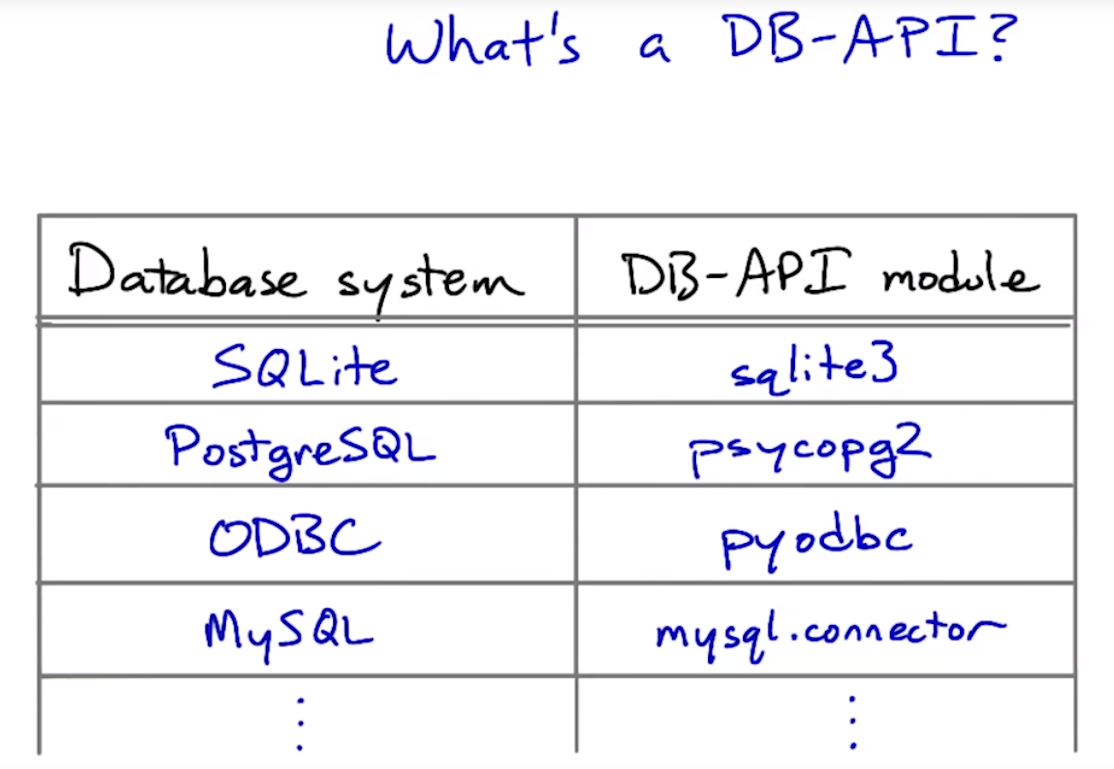 What's a DB-API?
Database system DB-API module
SQLite sqlite3
PostgreSQL psycopg2
ODBC pyodbc
MySQL mysql.connector
⋮ ⋮